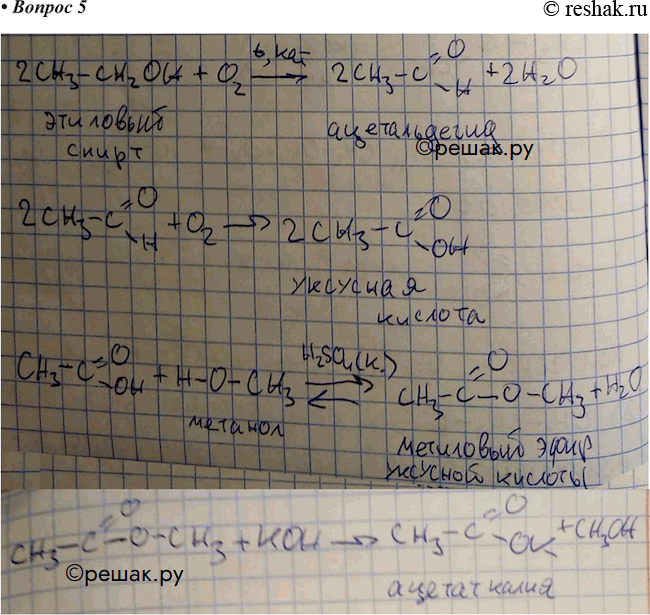 • Вопрос 5
© reshak.ru
2CH₃-CH₂OH + O₂ t, кат → 2CH₃-C=O-H + 2H₂O
этиловый спирт
ацетальдегид
©решак.ру
2CH₃-C=O-H + O₂ → 2CH₃-C=O-OH
уксусная
кислота
CH₃-C=O-OH + H-O-CH₃ H₂SO₄(к.) ⇄ CH₃-C=O-O-CH₃ + H₂O
метанол
метиловый эфир
уксусной кислоты
CH₃-C=O-O-CH₃ + KOH → CH₃-C=O-OK + CH₃OH
©решак.ру
ацетат калия